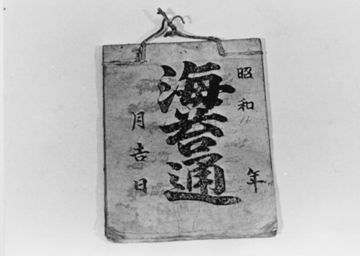 昭和 年
海苔通
月吉日